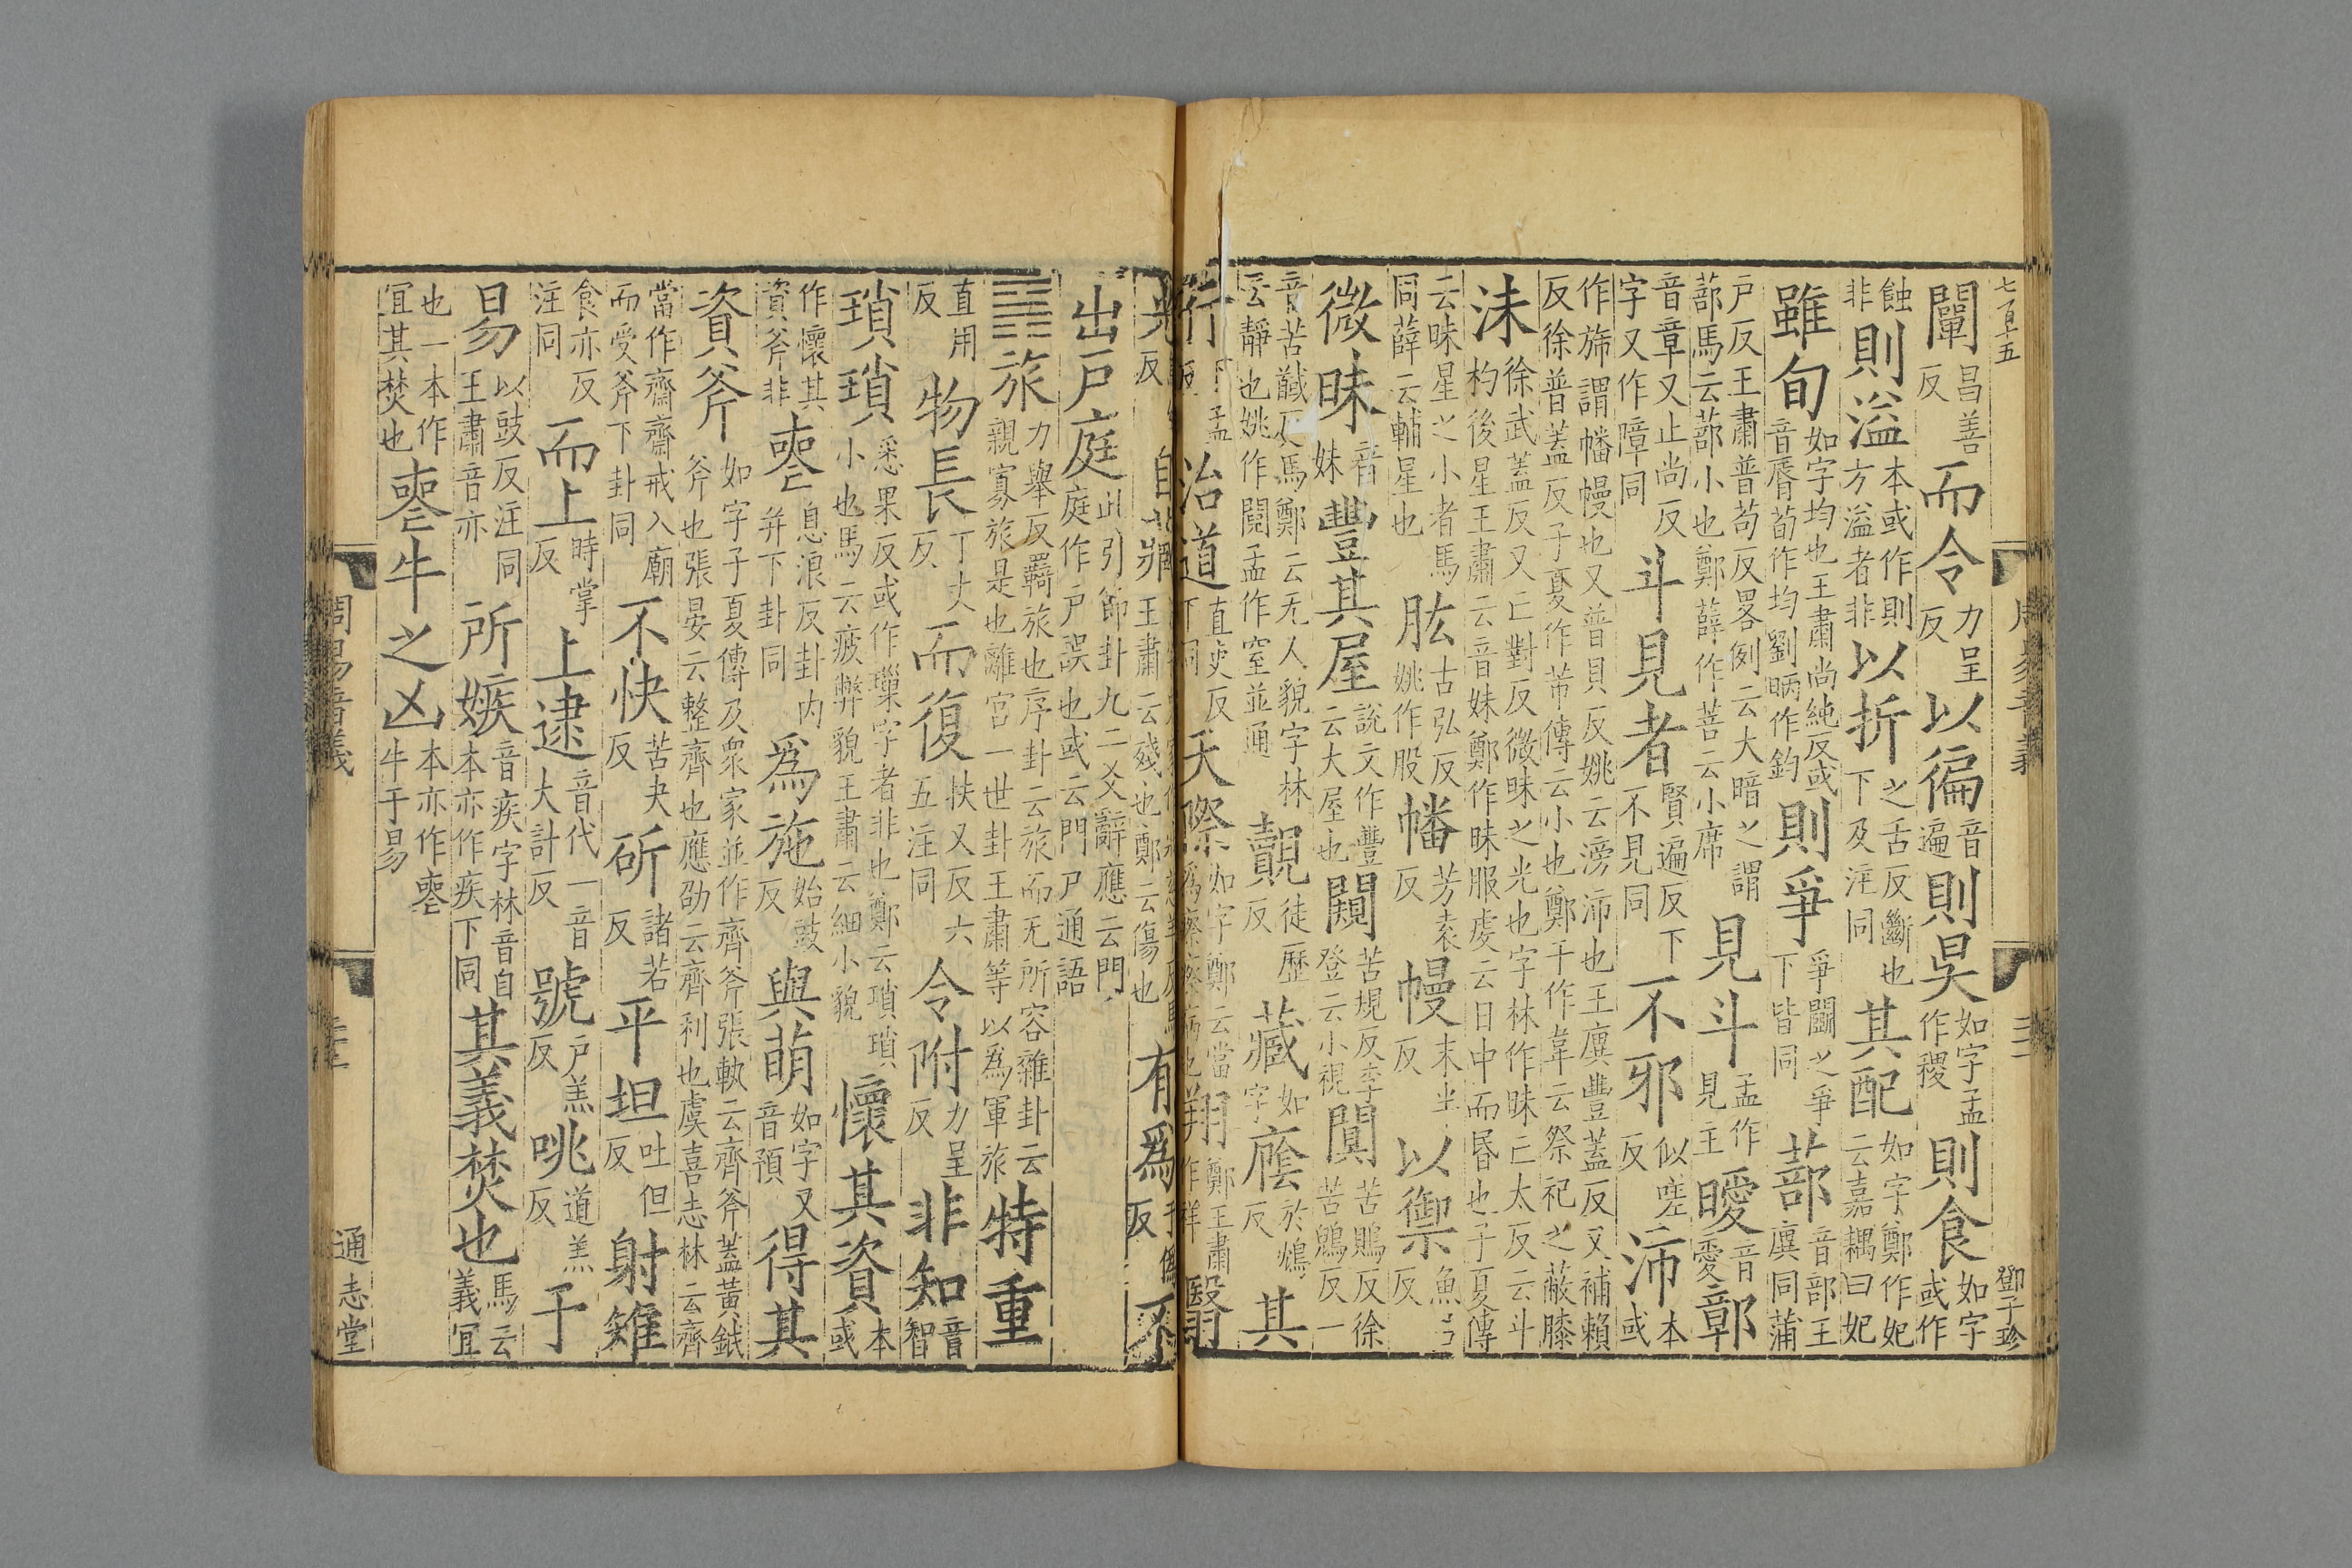 七百十五
闡昌善反而令力呈反以徧音遍則昊如字孟作稷則食如字或作
蝕非則溢本或作則方溢者非以折之舌反斷也下及注同其配如字鄭作妃云嘉耦曰妃
雖旬如字均也王肅尚純反或音脣荀作均劉昞作鈞則爭爭鬬之爭下皆同蔀音部王廙同蒲
戶反王肅普苟反畧例云大暗之謂蔀馬云蔀小也鄭薛作菩云小席見斗孟作見主曖音愛鄣
音章又止尚反字又作障同斗見者賢遍反下不見同不邪似嗟反沛本或
作旆謂幡幔也又普貝反姚云滂沛也王廙豐蓋反又補賴反徐普蓋反子夏作芾傳云小也鄭干作韋云祭祀之蔽膝
沬徐武蓋反又亡對反微昧之光也字林作昧亡太反云斗杓後星王肅云音妹鄭作昧服虔云日中而昬也子夏傳
云昧星之小者馬同薛云輔星也肱古弘反姚作股幡芳袁反幔末半反以禦魚呂反
微昧音妹豐其屋說文作寷云大屋也闚苦規反李登云小視闃苦鵙反徐苦鶪反一
音苦馘反馬鄭云无人貌字林云靜也姚作閱孟作窒並通覿徒歷反藏如字廕於鴆反其
行下孟反治道直吏反下同天際如字鄭云當為瘵瘵病也翔鄭王肅作祥翳
王肅云殘也鄭云傷也有為于偽反不
出戶庭此引節卦九二爻辭應云門庭作戶誤也或云門戶通語
䷷旅力舉反羇旅也序卦云旅而无所容雜卦云親寡旅是也離宮一世卦王肅等以為軍旅特重
直用反物長丁丈反而復扶又反六五注同令附力呈反非知音智
瑣瑣悉果反或作璅字者非也鄭云瑣瑣小也馬云疲弊貌王肅云細小貌懷其資本或
作懷其資斧非喪息浪反卦內并下卦同為施始豉反與萌如字又音預得其
資斧如字子夏傳及眾家並作齊斧張軌云齊斧蓋黃鉞斧也張晏云整齊也應劭云齊利也虞喜志林云齊
當作齋齋戒入廟而受斧下卦同不快苦夬反斫諸若反平坦吐但反射雉
食亦反注同而上時掌反上逮音代一音大計反號戶羔反咷道羔反于
易以豉反注同王肅音亦所嫉音疾字林音自本亦作疾下同其義焚也馬云義宜
也一本作宜其焚也喪牛之凶本亦作喪牛于易
周易音義
通志堂
鄧子珍